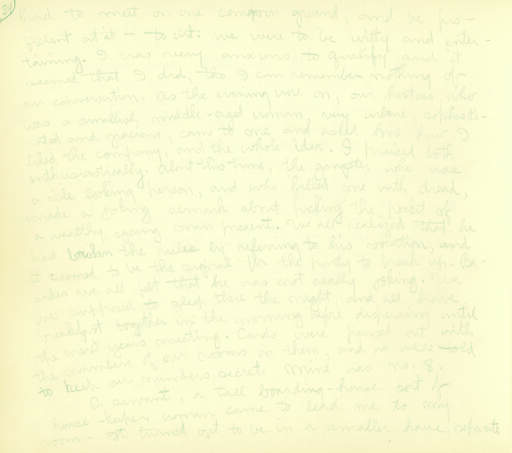 had to meet on one common ground, and be pro-
ficient at it - to wit: we were to be witty and enter-
taining. I was very anxious to qualify and it
seemed that I did, tho I can remember nothing of
our conversation. As the evening wore on, our hostess, who
was a smallish, middle-aged woman, very urbane, sophisti-
cated and gracious, came to me and asked how I
liked the company, and the whole idea. I praised both
enthusiastically. About this time, the gangster, who was
a vile looking person, and who filled me with dread,
made a joking remark about picking the pocket of
a wealthy young man present. We all realized that he
had broken the rules by referring to his vocation, and
it seemed to be the signal for the party to break up. Be-
sides we all felt that he was not really joking. We
were supposed to sleep there the night and all have
breakfast together in the morning before dispersing until
the next year's meeting. Cards were passed out with
the numbers of our rooms on them, and we were told
to keep our numbers secret. Mine was no. 8.
A servant, a tall boarding-house sort of
house-keeper woman came to lead me to my
room - it turned out to be in a smaller house separate